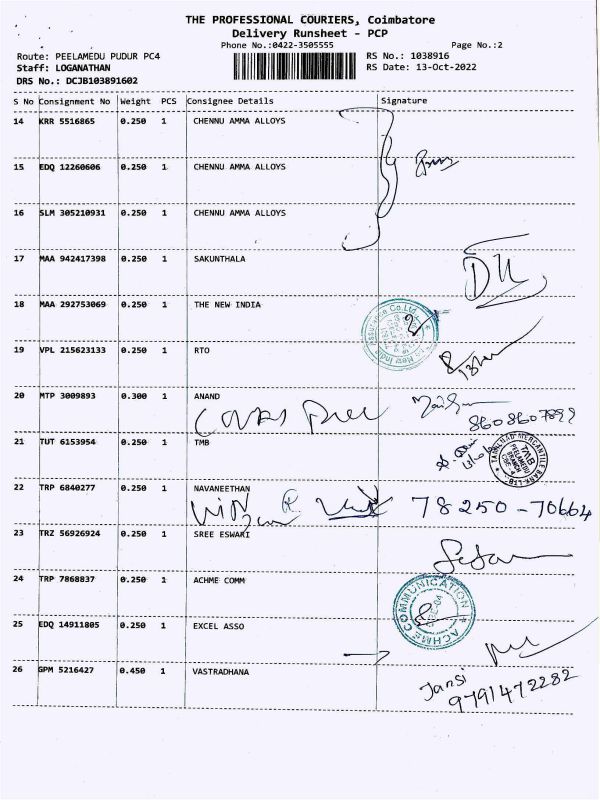 THE PROFESSIONAL COURIERS, Coimbatore
Delivery Runsheet - PCP
Phone No.:0422-3505555 Page No.:2
Route: PEELAMEDU PUDUR PC4 RS No.: 1038916
Staff: LOGANATHAN RS Date: 13-Oct-2022
DRS No.: DCJB103891602
S No Consignment No Weight PCS Consignee Details Signature
14 KRR 5516865 0.250 1 CHENNU AMMA ALLOYS
15 EDQ 12260606 0.250 1 CHENNU AMMA ALLOYS
16 SLM 305210931 0.250 1 CHENNU AMMA ALLOYS
17 MAA 942417398 0.250 1 SAKUNTHALA
18 MAA 292753069 0.250 1 THE NEW INDIA
19 VPL 215623133 0.250 1 RTO
20 MTP 3009893 0.300 1 ANAND
8608607899
21 TUT 6153954 0.250 1 TMB
TAMILNAD MERCANTILE BANK LTD.
TMB
PEELAMEDU
BRANCH
22 TRP 6840277 0.250 1 NAVANEETHAN
78250-70664
23 TRZ 56926924 0.250 1 SREE ESWARI
24 TRP 7868837 0.250 1 ACHME COMM
ACHME COMMUNICATION
25 EDQ 14911805 0.250 1 EXCEL ASSO
26 GPM 5216427 0.450 1 VASTRADHANA
Jansi
9791472282